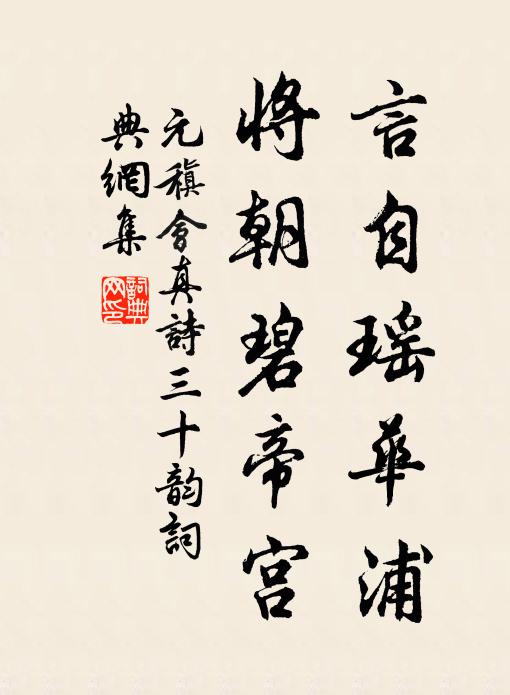 言自瑶華浦
将朝碧帝宫
元稹會真詩三十韵詞
典網集
詞典
网印